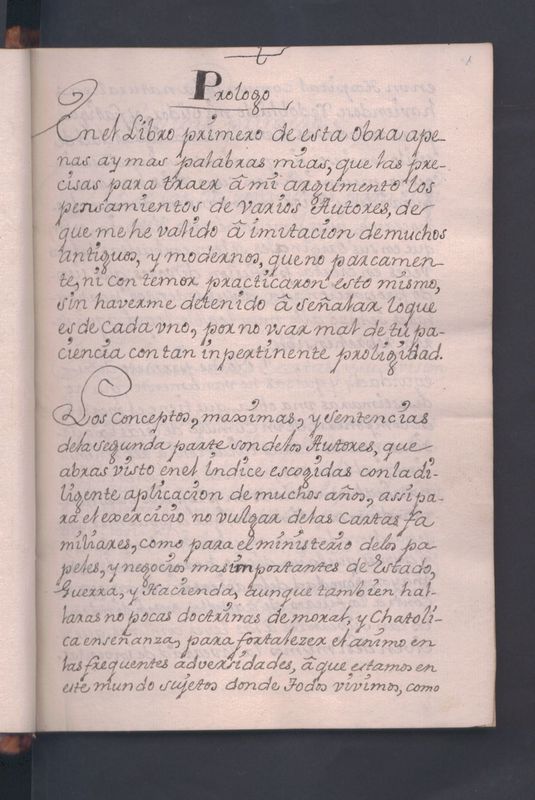 Prologo
En el Libro primero de esta Obra ape-
nas ay mas palabras mias, que las pre-
cisas para traer â mi argumento los
pensamientos de varios Autores, de
que me he valido â imitacion de muchos
antiguos, y modernos, que no parcamen-
te, ni con temor practicaron esto mismo,
sin haverme detenido â señalar loque
es de cada vno, por no vsar mal de tu pa-
ciencia con tan inpertinente proligidad.
Los conceptos, maximas, y sentencias
dela segunda parte son delos Autores, que
abras visto enel indice escogidas con la di-
ligente aplicacion de muchos años, assi pa-
ra el exercicio no vulgar delas Cartas fa
miliares, como para el ministerio delos pa-
peles, y negocios mas importantes de Estado,
Guerra, y Hacienda, aunque tambien hal-
laras no pocas doctrinas de moral, y Chatoli-
ca enseñanza, para fortalezer el animo en
las frequentes adversidades, â que estamos en
este mundo sujetos donde Todos vivimos, como